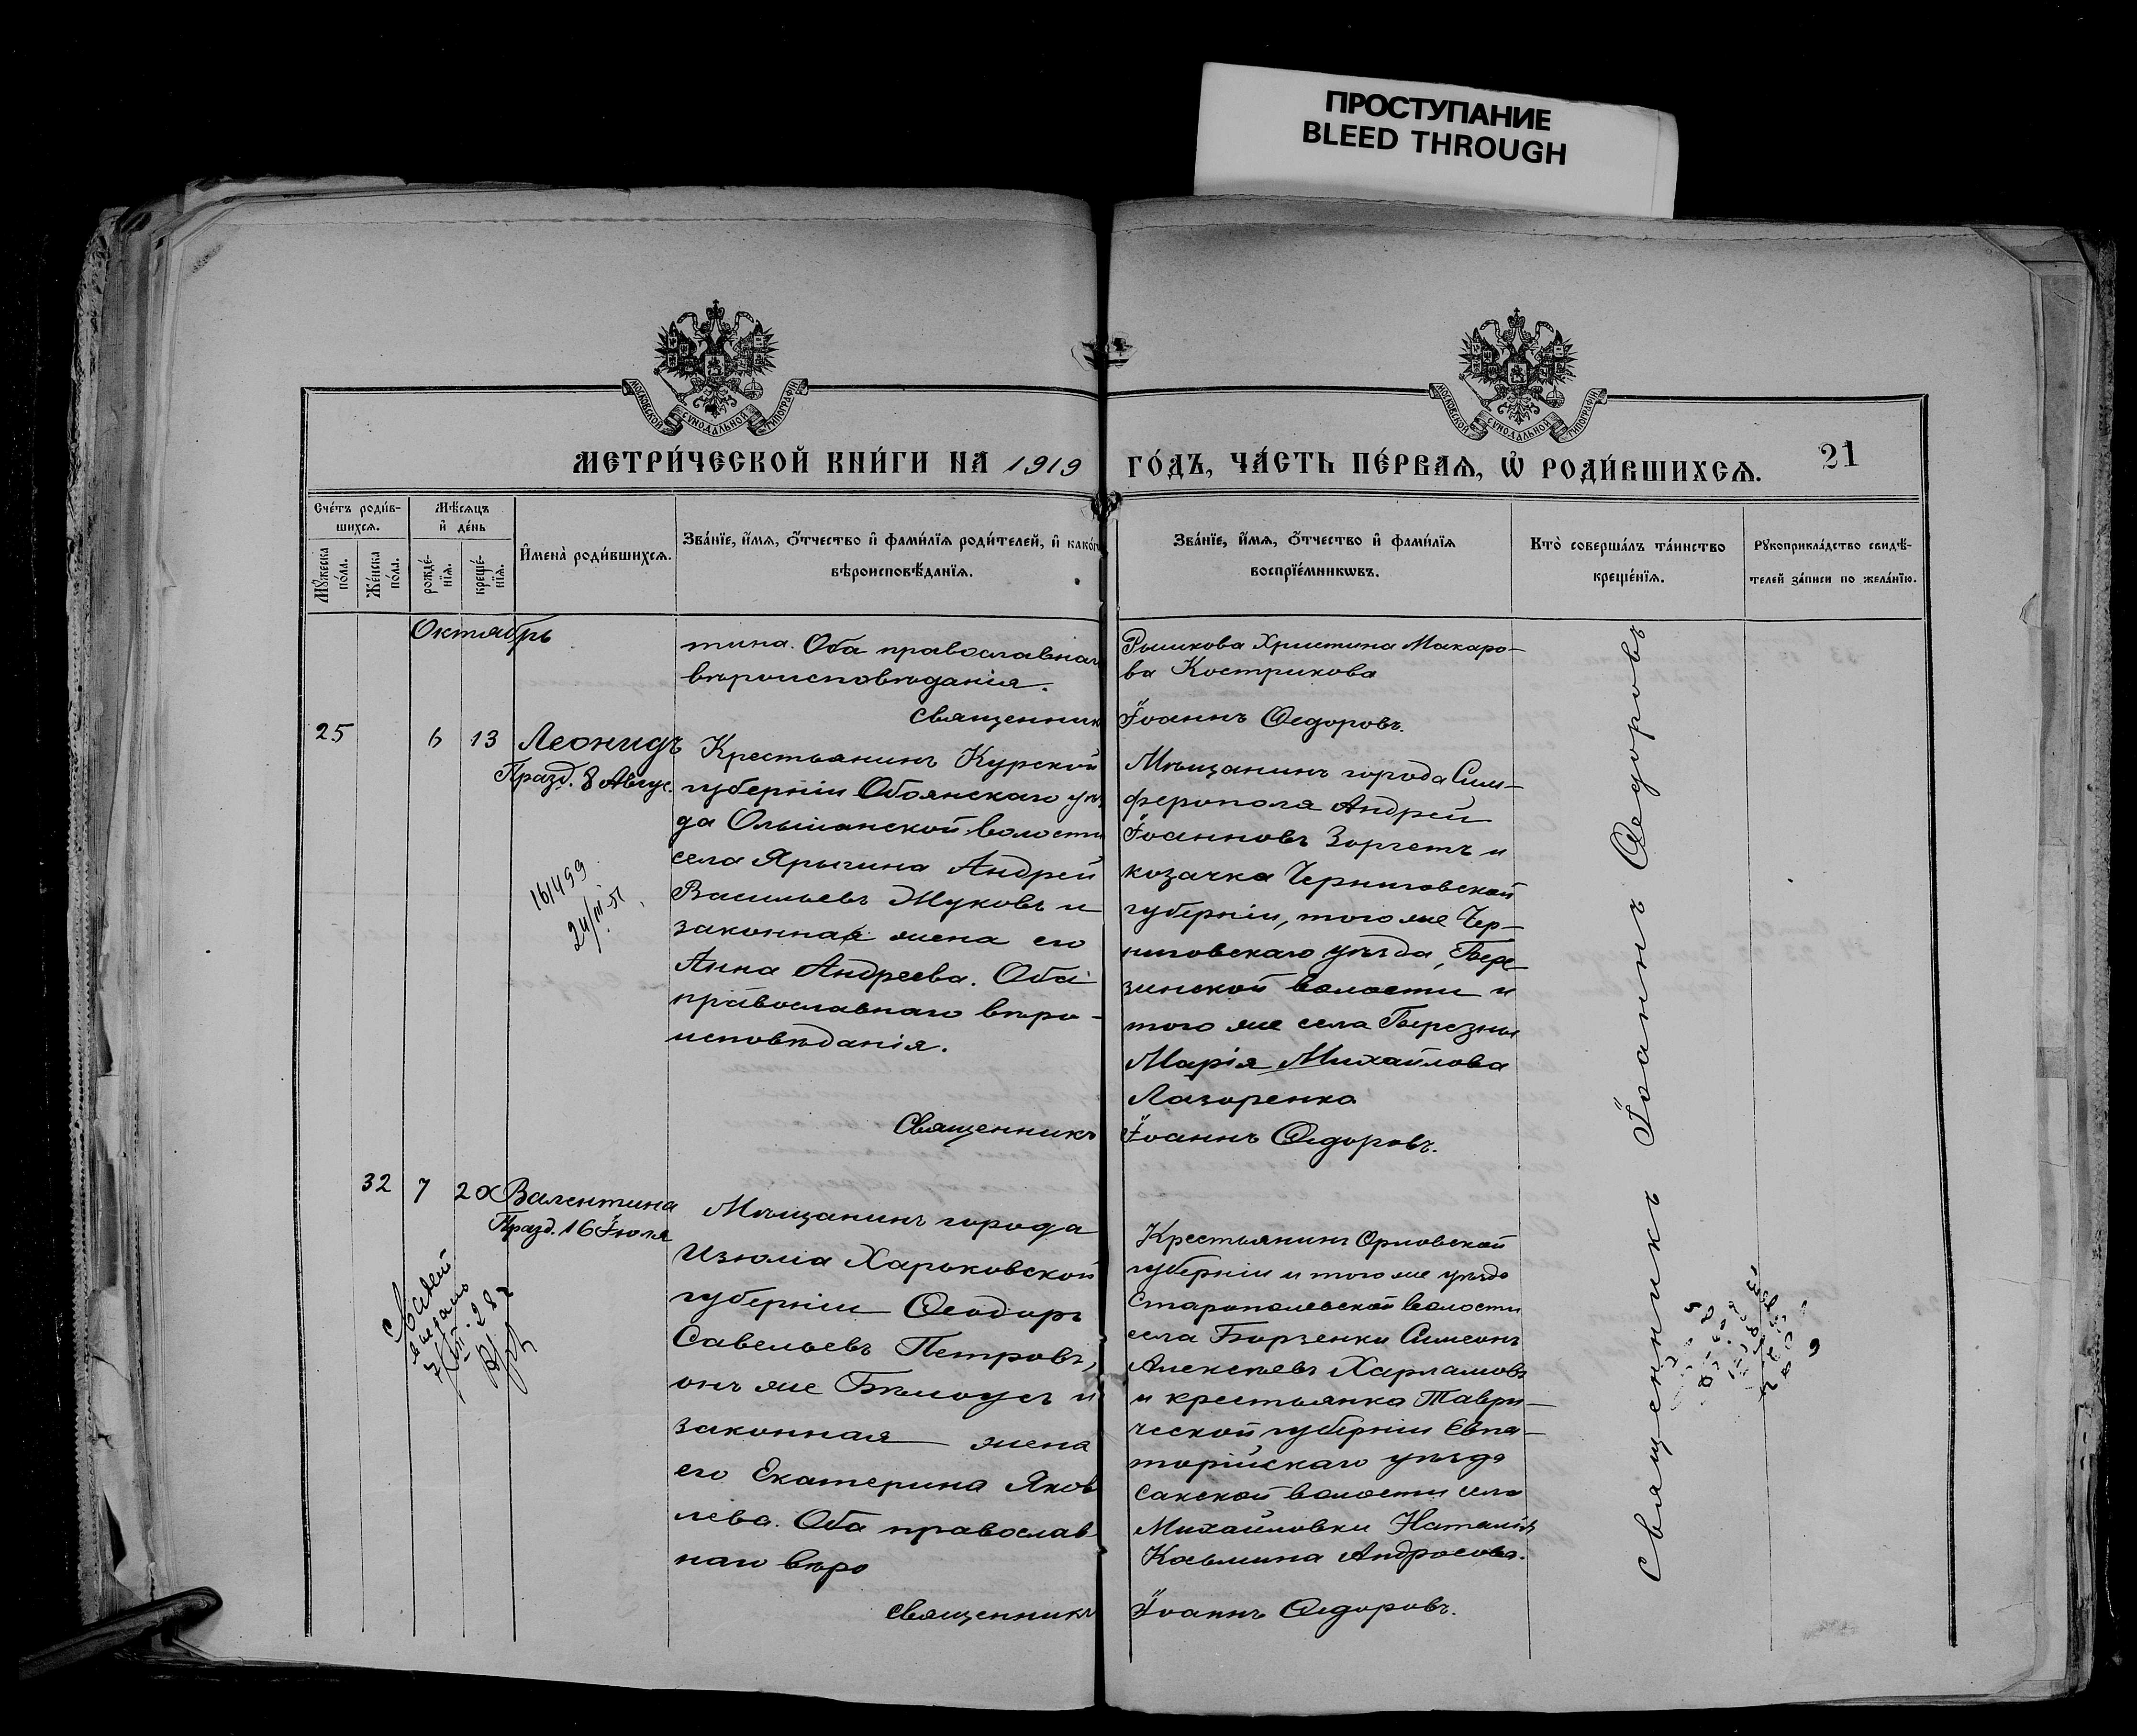 ПРОСТУПАНИЕ
BLEED THROUGH
МОСКОВСКОЙ СѴНОДАЛЬНОЙ ТИПОГРАФІИ
МОСКОВСКОЙ СѴНОДАЛЬНОЙ ТИПОГРАФІИ
МЕТРИ́ЧЕСКОЙ КНИ́ГИ НА 1919 ГО́ДЪ, ЧА́СТЬ ПЕ́РВАѦ, Ѡ҆ РОДИ́ВШИХСѦ.
21
Сче́тъ роди́в-
шихсѧ.
Мѣ́сѧцъ
и҆ де́нь
Мꙋ́жеска
по́ла.
Же́нска
по́ла.
рожде́-
нїѧ.
креще́-
нїѧ.
И҆мена̀ роди́вшихсѧ.
Зва́нїе, и҆́мѧ, ѻ҆́тчество и҆ фами́лїѧ роди́телей, и҆ како́гѡ
вѣроисповѣ́данїѧ.
Зва́нїе, и҆́мѧ, ѻ҆́тчество и҆ фами́лїѧ
воспрїе́мникѡвъ.
Кто̀ соверша́лъ та́инство
креще́нїѧ.
Рꙋкоприкла́дство свидѣ́-
телей за́писи по жела́нїю.
Октябрь
тина. Оба православнаго
вѣроисповѣданія.
Священникъ
Рышкова Христина Макаро-
ва Кострикова
Іоаннъ Ѳедоровъ.
25
6
13
Леонидъ
Празд. 8 Авгус.
161499
24/III-51
Крестьянинъ Курской
губерніи Обоянскаго уѣз
да Ольшанской волости
села Ярыгина Андрей
Васильевъ Жуковъ и
законная жена его
Анна Андреева. Оба
православнаго вѣро-
исповѣданія.
Священникъ
Мѣщанинъ города Сим-
ферополя Андрей
Іоанновъ Зоргетъ и
козачка Черниговской
губерніи, того же Чер-
ниговскаго уѣзда, Бере
зинской волости и
того же села Березны
Марія Михайлова
Лазоренко
Іоаннъ Ѳедоровъ.
32
7
20
Валентина
Празд. 16 Іюля
Мѣщанинъ города
Изюма Харьковской
губерніи Ѳеодоръ
Савельевъ Петровъ,
онъ же Бѣлоусъ и
законная жена
его Екатерина Яков
лева. Оба православ
наго вѣро
священникъ
Крестьянинъ Орловской
губерніи и того же уѣзда
Старопольевской волости
села Борзенки Симеонъ
Алексѣевъ Харламовъ
и крестьянка Таври-
ческой губерніи Евпа-
торійскаго уѣзда
Сакской волости села
Михайловки Наталія
Козьмина Андросова.
Іоаннъ Ѳедоровъ.
Священникъ Іоаннъ Ѳедоровъ